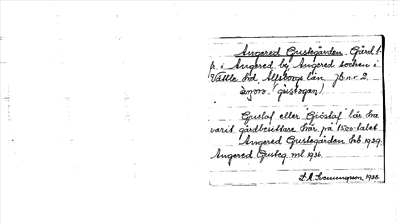 Angered Gustegården. Gård 1.
p. i Angered by Angered socken i
Vättle hd Älfsborgs län jb nr 2.
(gustogan)
Gustaf eller Göstaf lär ha
varit gårdbesittare här på 1500 talet
Angered Gustegården 1929.
Angered Gusteg. ml 1936.
1935